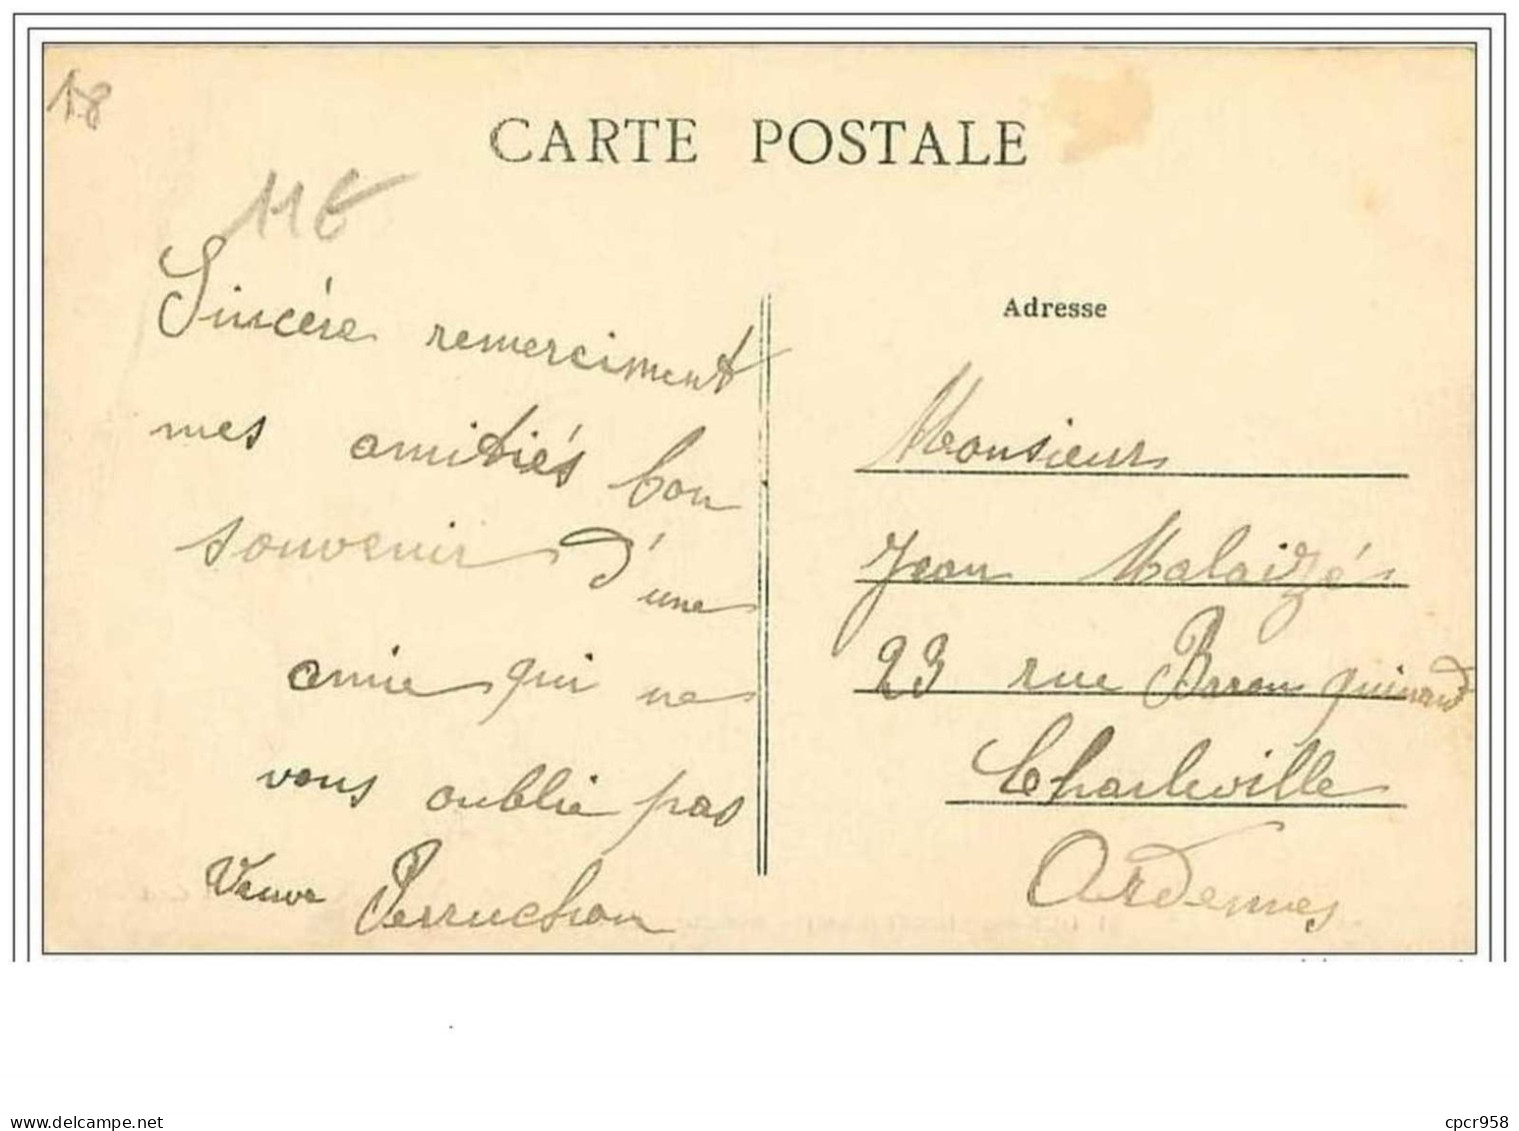 18
CARTE POSTALE
11€
Sincère remerciment
mes amitiés bon
souvenir d'une
amie qui ne
vous oublie pas
Veuve Perruchon
Adresse
Monsieur
Jean Malaizé
23 rue Baron quinard
Charleville
Ardennes
cpcr958